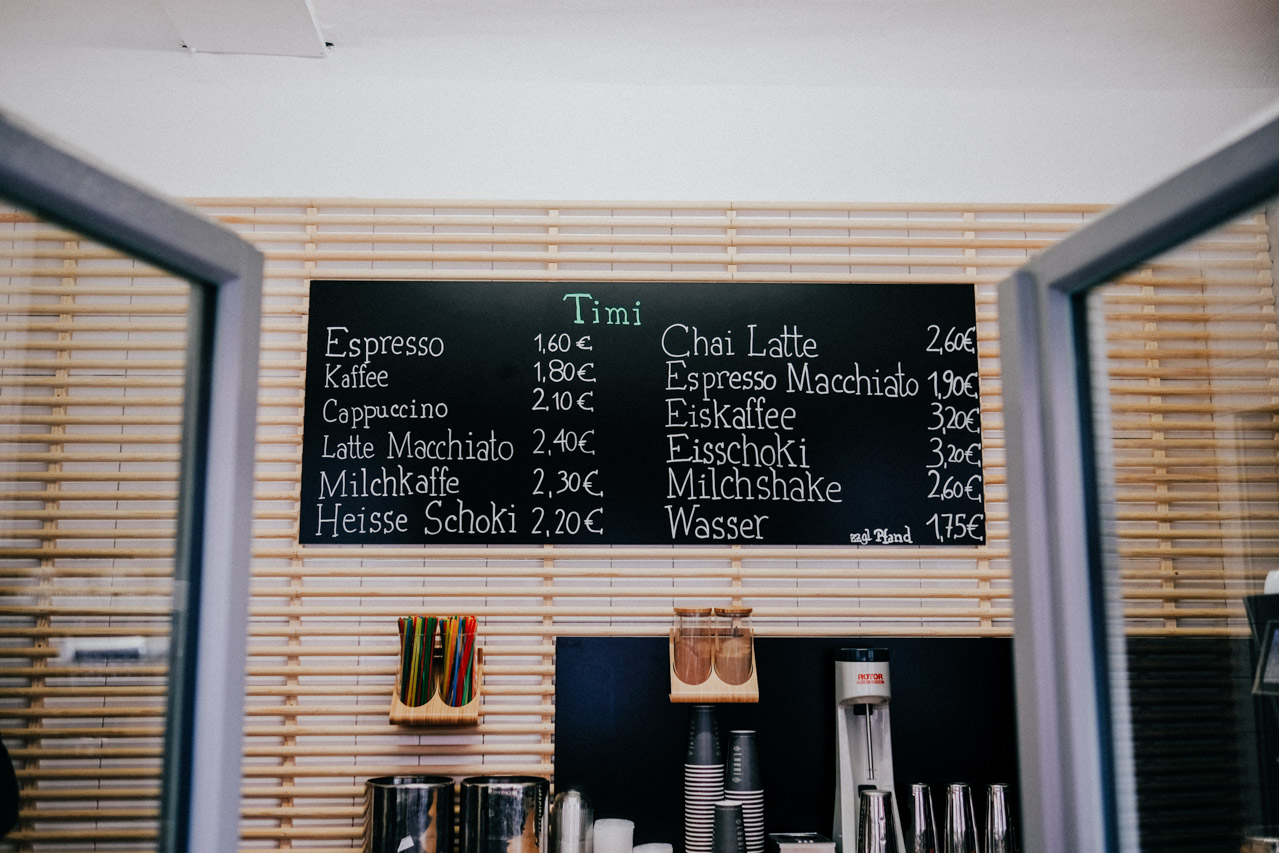 Timi
Espresso 1,60 €
Kaffee 1,80€
Cappuccino 2,10€
Latte Macchiato 2,40€
Milchkaffe 2,30€
Heisse Schoki 2,20€
Chai Latte 2,60€
Espresso Macchiato 1,90€
Eiskaffee 3,20€
Eisschoki 3,20€
Milchshake 2,60€
Wasser zzgl Pfand 1,75€
ROTOR